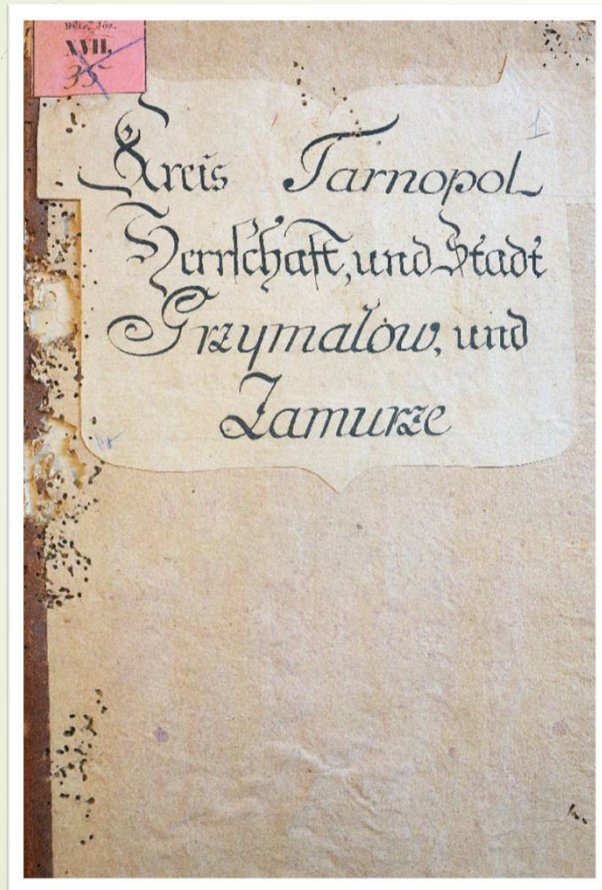 Metr. Joz.
XVII.
35
1
Kreis Tarnopol
Herrschaft, und Stadt
Grzymałow, und
Zamurze